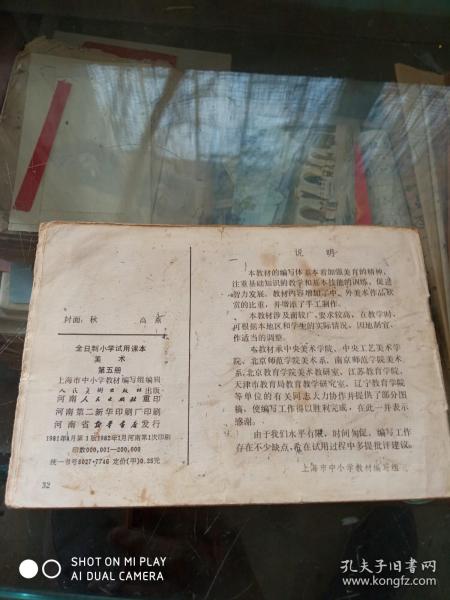 封面：秋 高燕
全日制小学试用课本
美术
第五册
上海市中小学教材编写组编辑
人民美术出版社出版
河南人民出版社重印
河南第二新华印刷厂印刷
河南省新华书店发行
1981年4月第1版1982年1月河南第1次印刷
印数000,001—200,000
统一书号8027·7746 定价(甲)0.25元
32
说明
本教材的编写体
基本着加强美育的精神，
注重基础知识的教学和基本技能的训练，促进
智力发展。教材内容增加了中、外美术作品欣
赏的比重，并增添了手工制作。
本教材涉及面较广，要求较高，在教学时，
可根据本地区和学生的实际情况，因地制宜，
作适当的调整。
本教材承中央美术学院、中央工艺美术学
院、北京师范学院美术系、南京师范学院美术
系、北京教育学院美术教研室、江苏教育学院、
天津市教育局教育教学研究室、辽宁教育学院
等单位的有关同志大力协作并提供了部分图
稿，使编写工作得以胜利完成，在此一并表示
感谢。
由于我们水平有限，时间匆促，编写工作
存在不少缺点，希在试用过程中多提批评建议。
上海市中小学教材编写组
SHOT ON MI PLAY
AI DUAL CAMERA
孔夫子旧书网
www.kongfz.com